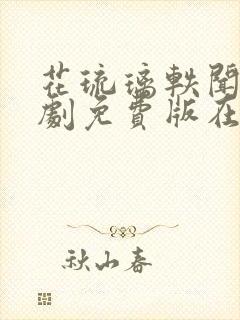 花琉璃軼聞
劇免費版在
秋山春